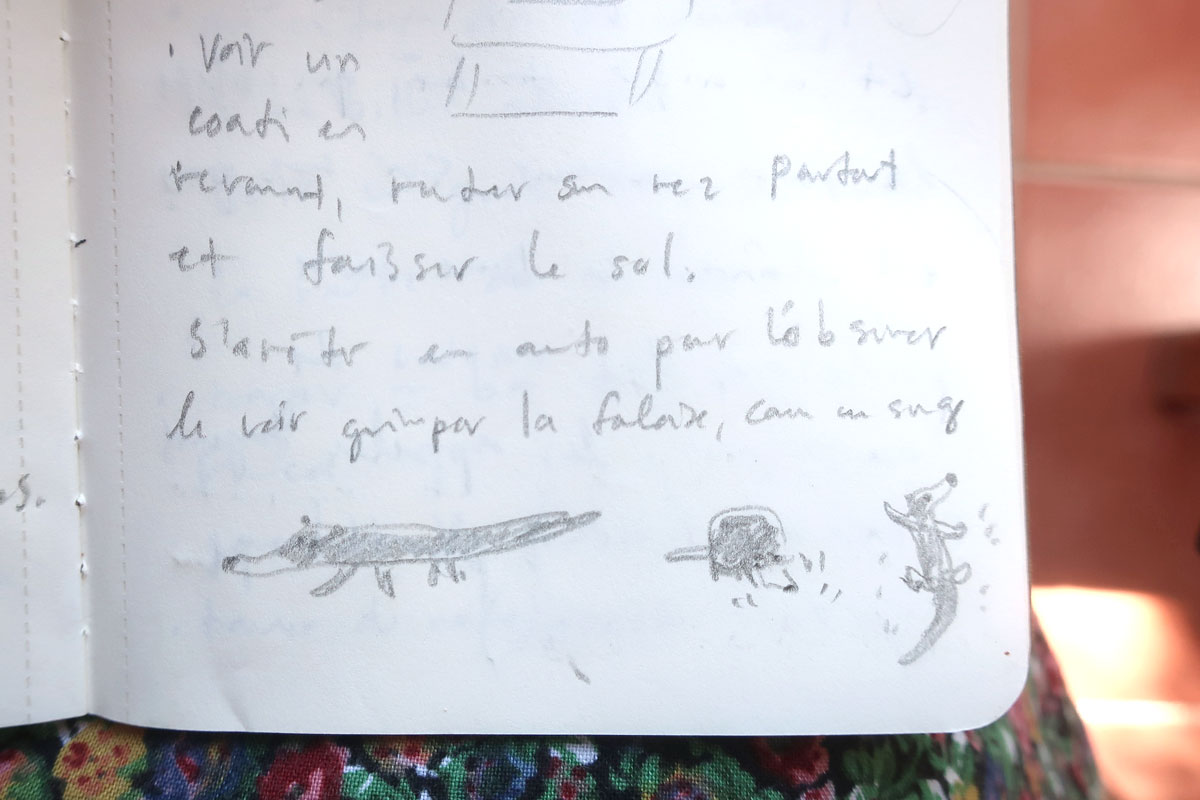 · Voir un
coati en
revenant, rentrer son nez partout
et faisser le sol.
S'arrêter en auto pour l'observer
le voir grimper la falaise, comme un singe
s.